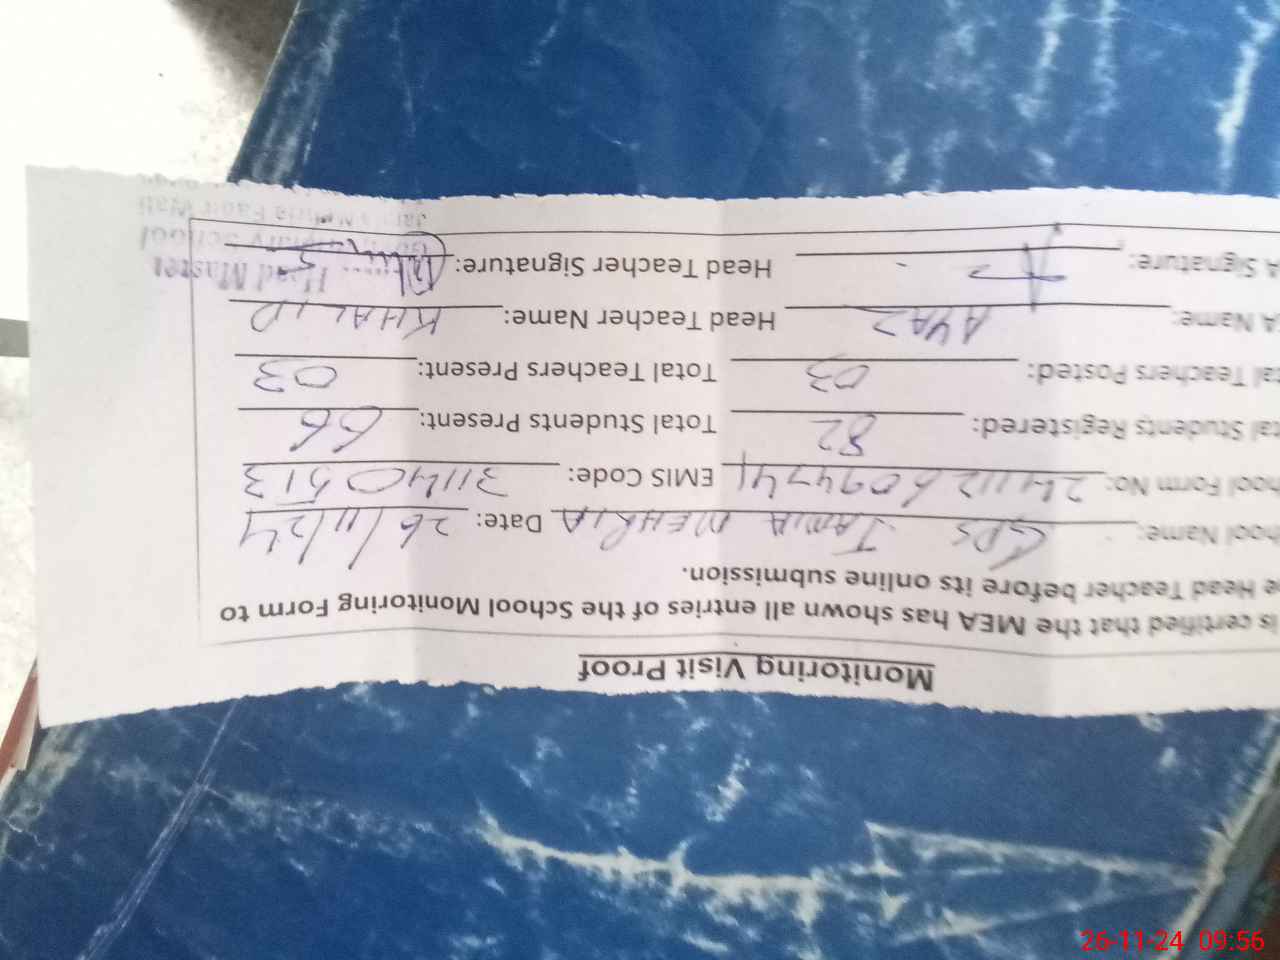 Monitoring Visit Proof
is certified that the MEA has shown all entries of the School Monitoring Form to
e Head Teacher before its online submission.
hool Name: GPS JAMIA MEHRIA Date: 26/11/24
hool Form No: 241126094741 EMIS Code: 31140513
tal Students Registered: 82 Total Students Present: 66
tal Teachers Posted: 03 Total Teachers Present: 03
A Name: AYAZ Head Teacher Name: KHALID
A Signature: Head Teacher Signature:
Head Master
School
26-11-24 09:56